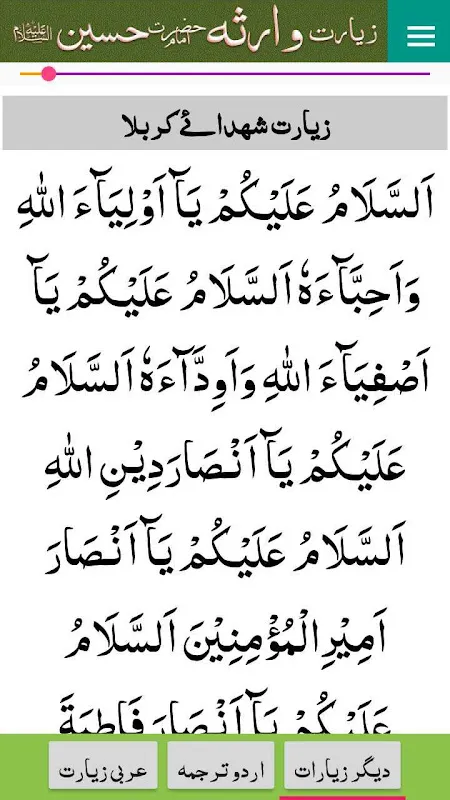 زیارت وارثہ حضرت امام حسین علیہ السلام
زیارت شھدائے کربلا
اَلسَّلَامُ عَلَيْكُمْ يَآ اَوْلِيَآءَ اللهِ
وَاَحِبَّآءَهٗ اَلسَّلَامُ عَلَيْكُمْ يَآ
اَصْفِيَآءَ اللهِ وَاَوِدَّآءَهٗ اَلسَّلَامُ
عَلَيْكُمْ يَآ اَنْصَارَدِيْنِ اللهِ
اَلسَّلَامُ عَلَيْكُمْ يَآ اَنْصَارَ
اَمِيْرِالْمُؤْمِنِيْنَ اَلسَّلَامُ
عَلَيْكُمْ يَآ اَنْصَارَ فَاطِمَةَ
دیگر زیارات
اردو ترجمہ
عربی زیارت